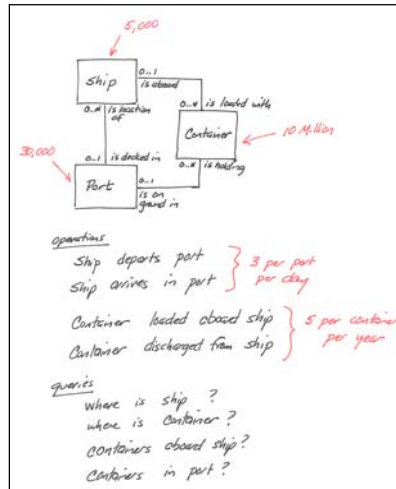 5,000
Ship
0..1
is aboard
0..* is location of
0..* is loaded with
Container
10 Million
30,000
0..1 is docked in
0..* is holding
Port
0..1
is on ground in
operations
Ship departs port
Ship arrives in port
3 per port per day
Container loaded aboard ship
Container discharged from ship
5 per container per year
queries
where is ship ?
where is container ?
containers aboard ship ?
containers in port ?